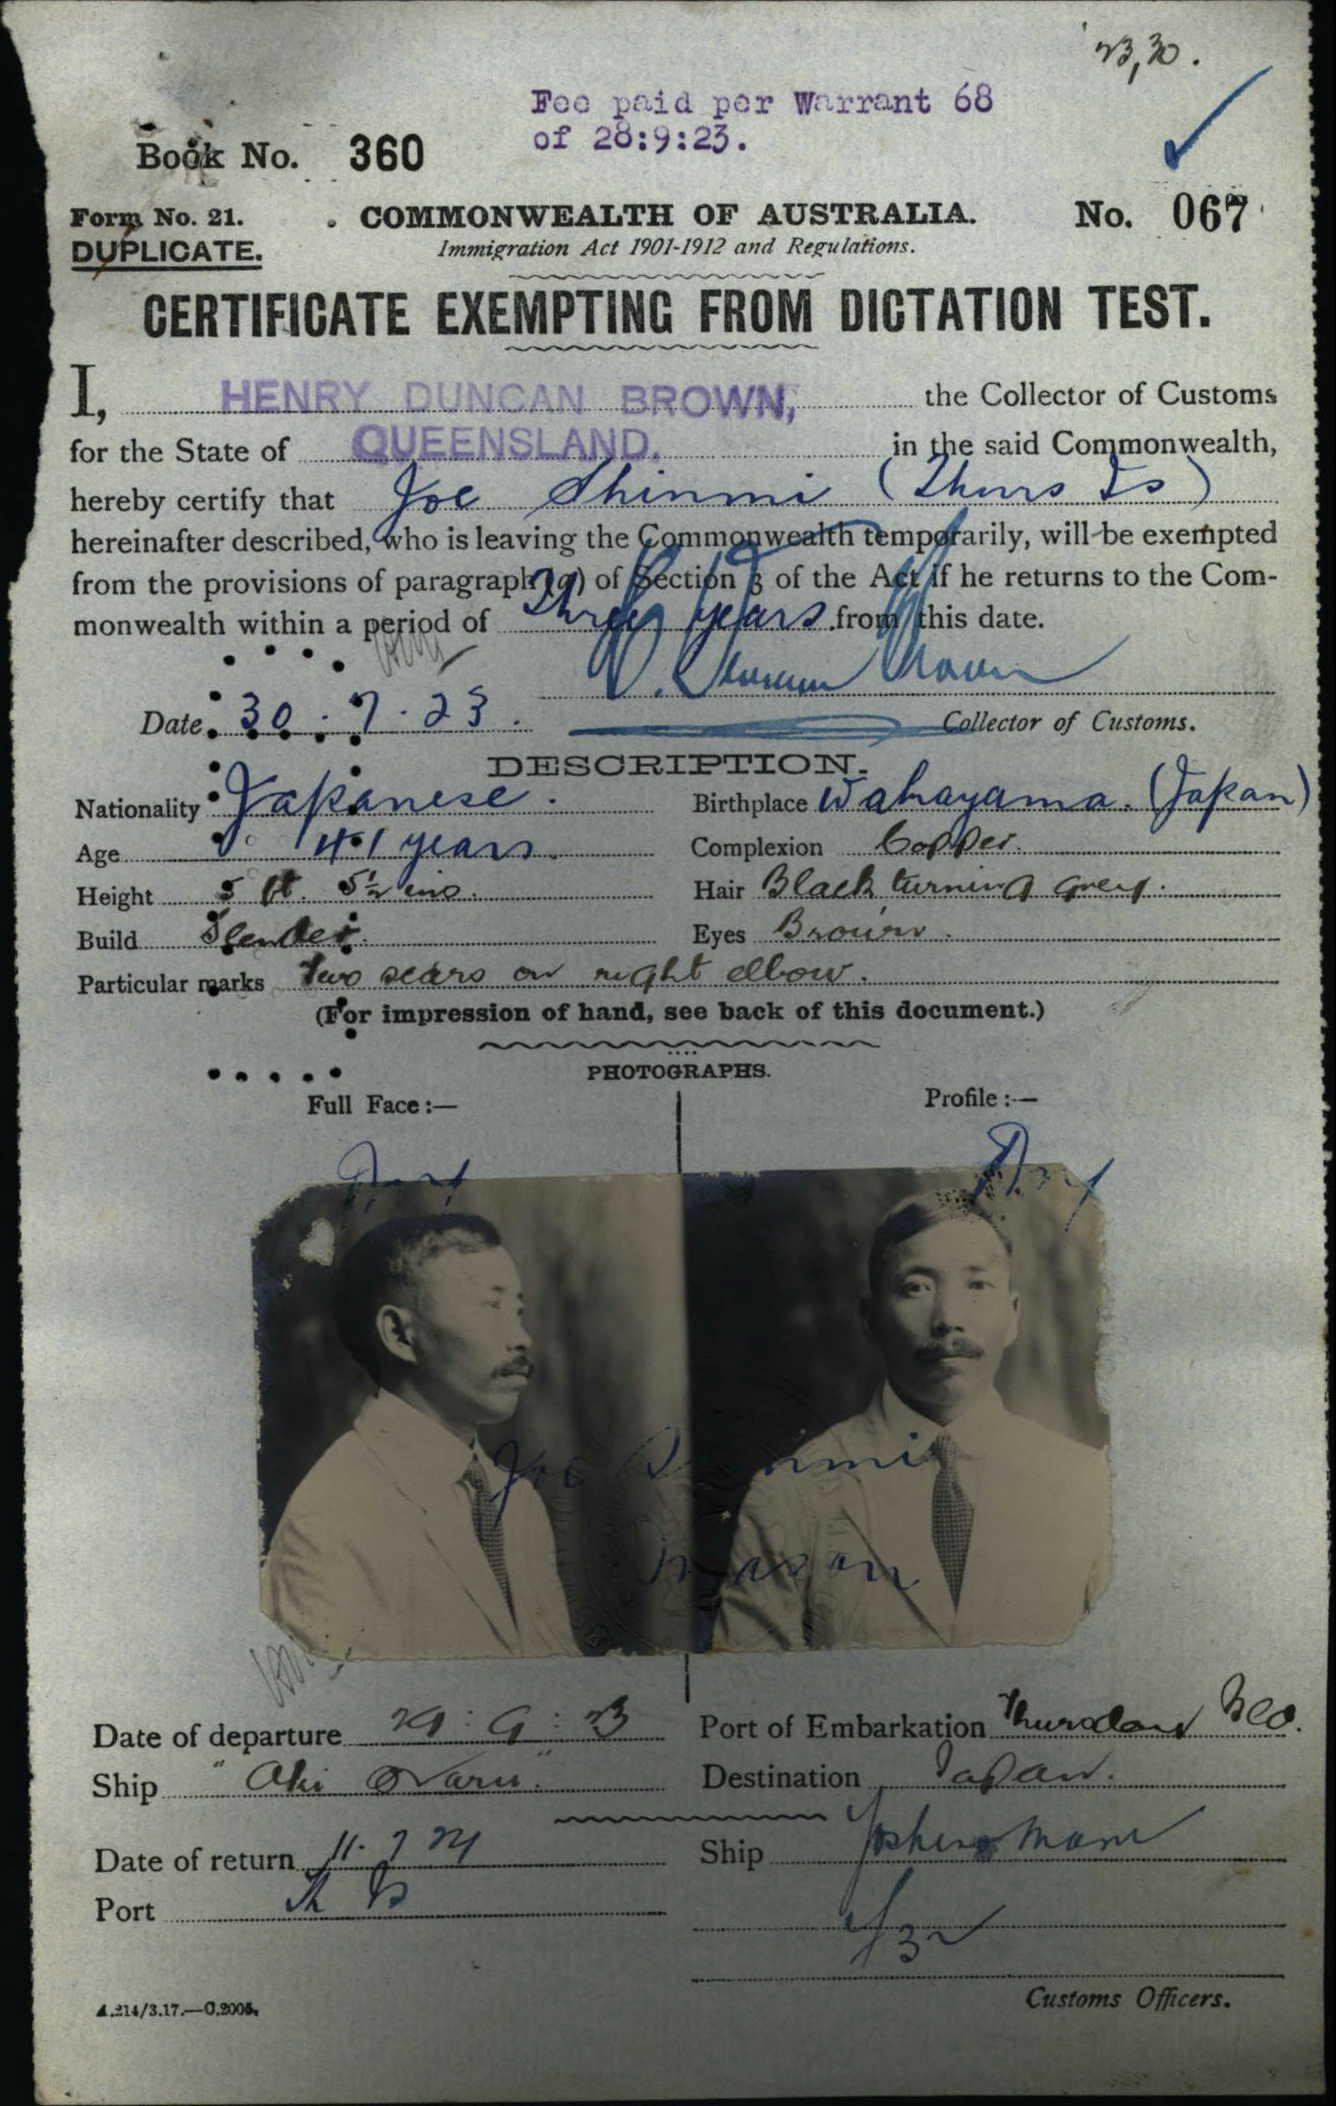 23,30.
Fee paid per Warrant 68
of 28:9:23.
Book No. 360
Form No. 21. COMMONWEALTH OF AUSTRALIA. No. 067
DUPLICATE. Immigration Act 1901-1912 and Regulations.
CERTIFICATE EXEMPTING FROM DICTATION TEST.
I, HENRY DUNCAN BROWN, the Collector of Customs
for the State of QUEENSLAND. in the said Commonwealth,
hereby certify that Joe Shinmi (Thurs Is)
hereinafter described, who is leaving the Commonwealth temporarily, will be exempted
from the provisions of paragraph (a) of Section 3 of the Act if he returns to the Com-
monwealth within a period of Three years from this date.
Date 30.7.23. Collector of Customs.
DESCRIPTION.
Nationality Japanese. Birthplace Wakayama. (Japan)
Age 41 years. Complexion Copper.
Height 5 ft. 5½ ins. Hair Black turning grey.
Build Slender. Eyes Brown.
Particular marks Two scars on right elbow.
(For impression of hand, see back of this document.)
PHOTOGRAPHS.
Full Face:— Profile:—
Joe Shinmi
Date of departure 29:9:23 Port of Embarkation Thursday Isld.
Ship "Aki Maru." Destination Japan.
Date of return 11.7 24 Ship Yoshino Maru
Port Th Is
Customs Officers.
A.214/3.17.—C.2005.